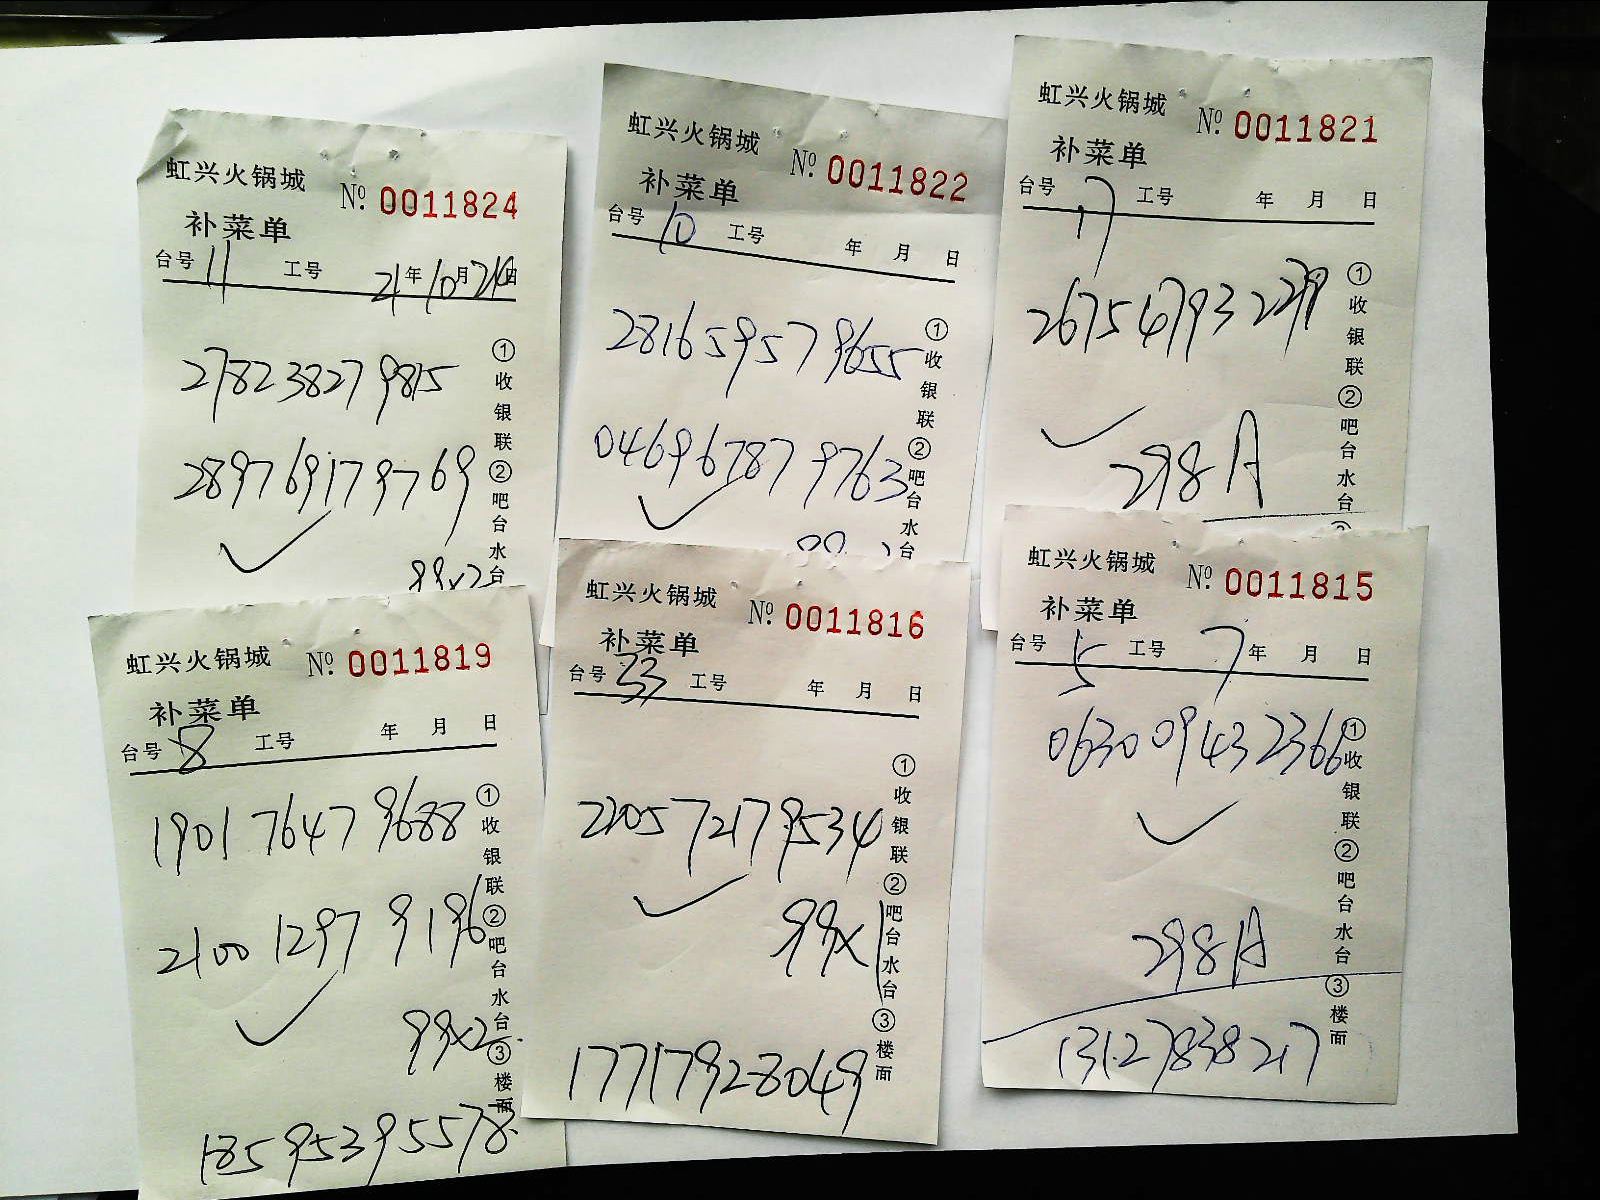 虹兴火锅城 № 0011824
补菜单
台号 11 工号 21年10月21日
27823827 9815
289769179769
99x2
①收银联②吧台水台
虹兴火锅城 № 0011822
补菜单
台号 10 工号 年 月 日
281659579655
046967879763
①收银联②吧台水台
虹兴火锅城 № 0011821
补菜单
台号 17 工号 年 月 日
267547932279
298A
①收银联②吧台水台
虹兴火锅城 № 0011819
补菜单
台号 8 工号 年 月 日
1901 7647 9688
2100 1297 9196
99x2
18595395578
①收银联②吧台水台③楼面
虹兴火锅城 № 0011816
补菜单
台号 33 工号 年 月 日
2205 7217 9534
99x1
17717928049
①收银联②吧台水台③楼面
虹兴火锅城 № 0011815
补菜单
台号 5 工号 7年 月 日
0630 0943 2366
298A
13127838217
①收银联②吧台水台③楼面